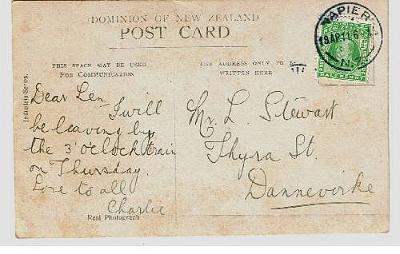 DOMINION OF NEW ZEALAND
POST CARD
THIS SPACE MAY BE USED
FOR COMMUNICATION
THE ADDRESS ONLY TO BE
WRITTEN HERE
NAPIER
19 AP 11 6
N.Z
HALFPENNY
Industrial Series.
Dear Len,
I will
be leaving by
the 3 o'clock train
on Thursday.
Love to all
Charlie
Mr. L. Stewart
Thyra St.
Dannevirke
Real Photograph